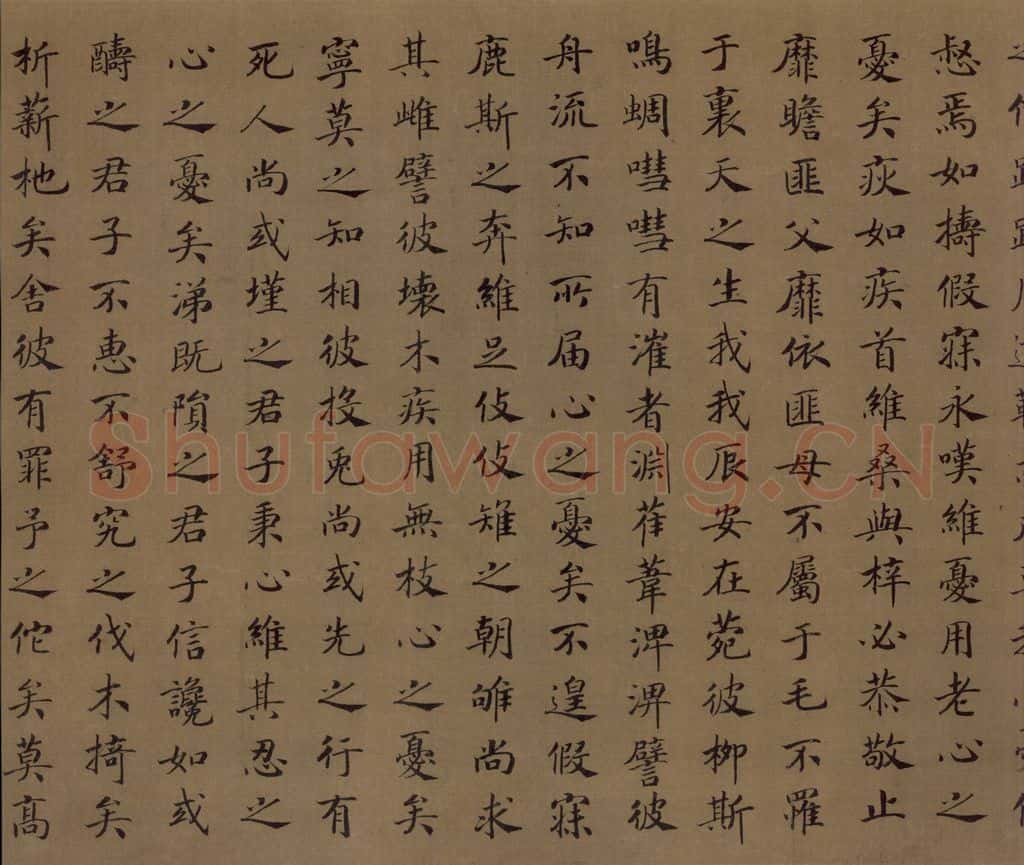 惄焉如擣假寐永嘆維憂用老心之
憂矣疢如疾首維桑與梓必恭敬止
靡瞻匪父靡依匪母不屬于毛不羅
于裏天之生我我辰安在菀彼柳斯
鳴蜩嘒嘒有漼者淵萑葦淠淠譬彼
舟流不知所届心之憂矣不遑假寐
鹿斯之奔維足伎伎雉之朝雊尚求
其雌譬彼壞木疾用無枝心之憂矣
寧莫之知相彼投兎尚或先之行有
死人尚或墐之君子秉心維其忍之
心之憂矣涕既隕之君子信讒如或
醻之君子不惠不舒究之伐木掎矣
析薪杝矣舍彼有罪予之佗矣莫高
Shufawang.CN